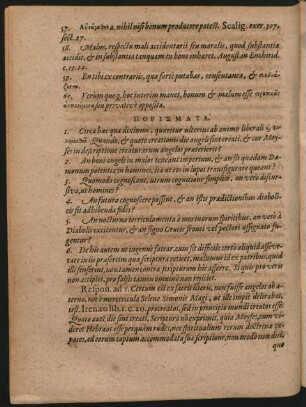 57. nihil nisi bonum producere potest. Scalig. exer. 307.
sect. 27.
58. Malus, respectu mali accidentarii seu moralis, quod substantia
accidit, & in substantia tanquam in bono inhæret. Augustin Enchirid.
c. 13. 14.
59. En tibi ex contrariis, quæ fortè putabas, consentanea, &
60. Verùm quoq; hoc interim manet, bonum & malum esse
seu privativè opposita.
ΠΟΡΙΣΜΑΤΑ.
1. Circa hæc quæ diximus, quæritur ulterius ab animo liberali
Quando, & quoto creationis die angeli sint creati, & cur Moy-
ses in descriptione creaturarum angelos præterierit?
2. An boni angeli in malos teneant imperium, & an sit quædam Dæ-
monum potentia in homines, ita ut eos in lupos transfigurare queant?
3. Quomodo cognoscant, utrum cognitione simplici, an verò discur-
siva, ut homines?
4. An futura cognoscere possint, & an istis prædictionibus diaboli-
cis sit adhibenda fides?
5. An nocturna terriculamenta à mortuorum spiritibus, an verò à
Diabolis excitentur, & an signo Crucis fronti vel pectori affigendo fu-
gentur?
6. De his autem ut ingenuè fatear, cum sit difficile certi aliquid asseve-
rare in iis præsertim quæ scriptura reticet, malumus id ex patribus, quid
illi senserint, non tamen extra scripturam hic asserere. Si quis pro veris
non accipiet, pro falsis tamen omnino non rejiciet.
Respon. ad 1. Certum est ex sacris literis, non fuisse angelos ab æ-
terno, nec è meretricula Selene Simonis Magi, ut ille impiè delirabat,
test. Irenæo lib. 1. c. 20. procreatos, sed in principio mundi creatos esse.
Quoto autē die sint creati, Scriptura nō exprimit, quia Moyses, cum vi-
deret Hebræos esse perquàm rudes, nec spiritualium rerum doctrina ca-
paces, ad eorum captum accommodata sua scriptione, non modò non dicit
quo